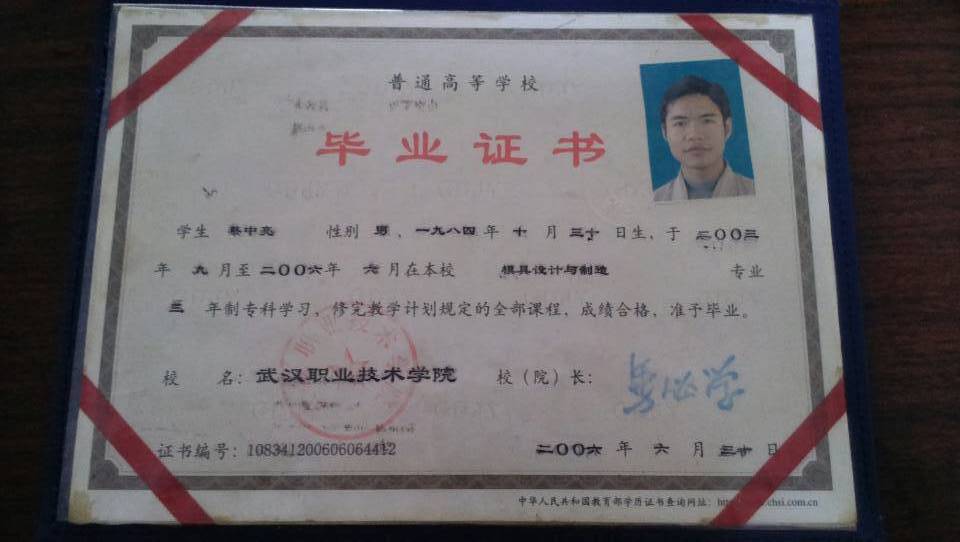 普通高等学校
毕业证书
学生 蔡中亮 性别 男、一九八四年 十 月 三十 日生,于 二〇〇三
年 九 月至 二〇〇六年 六 月在本校 模具设计与制造 专业
三 年制专科学习,修完教学计划规定的全部课程,成绩合格,准予毕业。
校 名:武汉职业技术学院 校(院)长:
证书编号:108341200606064412 二〇〇六 年 六 月 三十 日
中华人民共和国教育部学历证书查询网址: